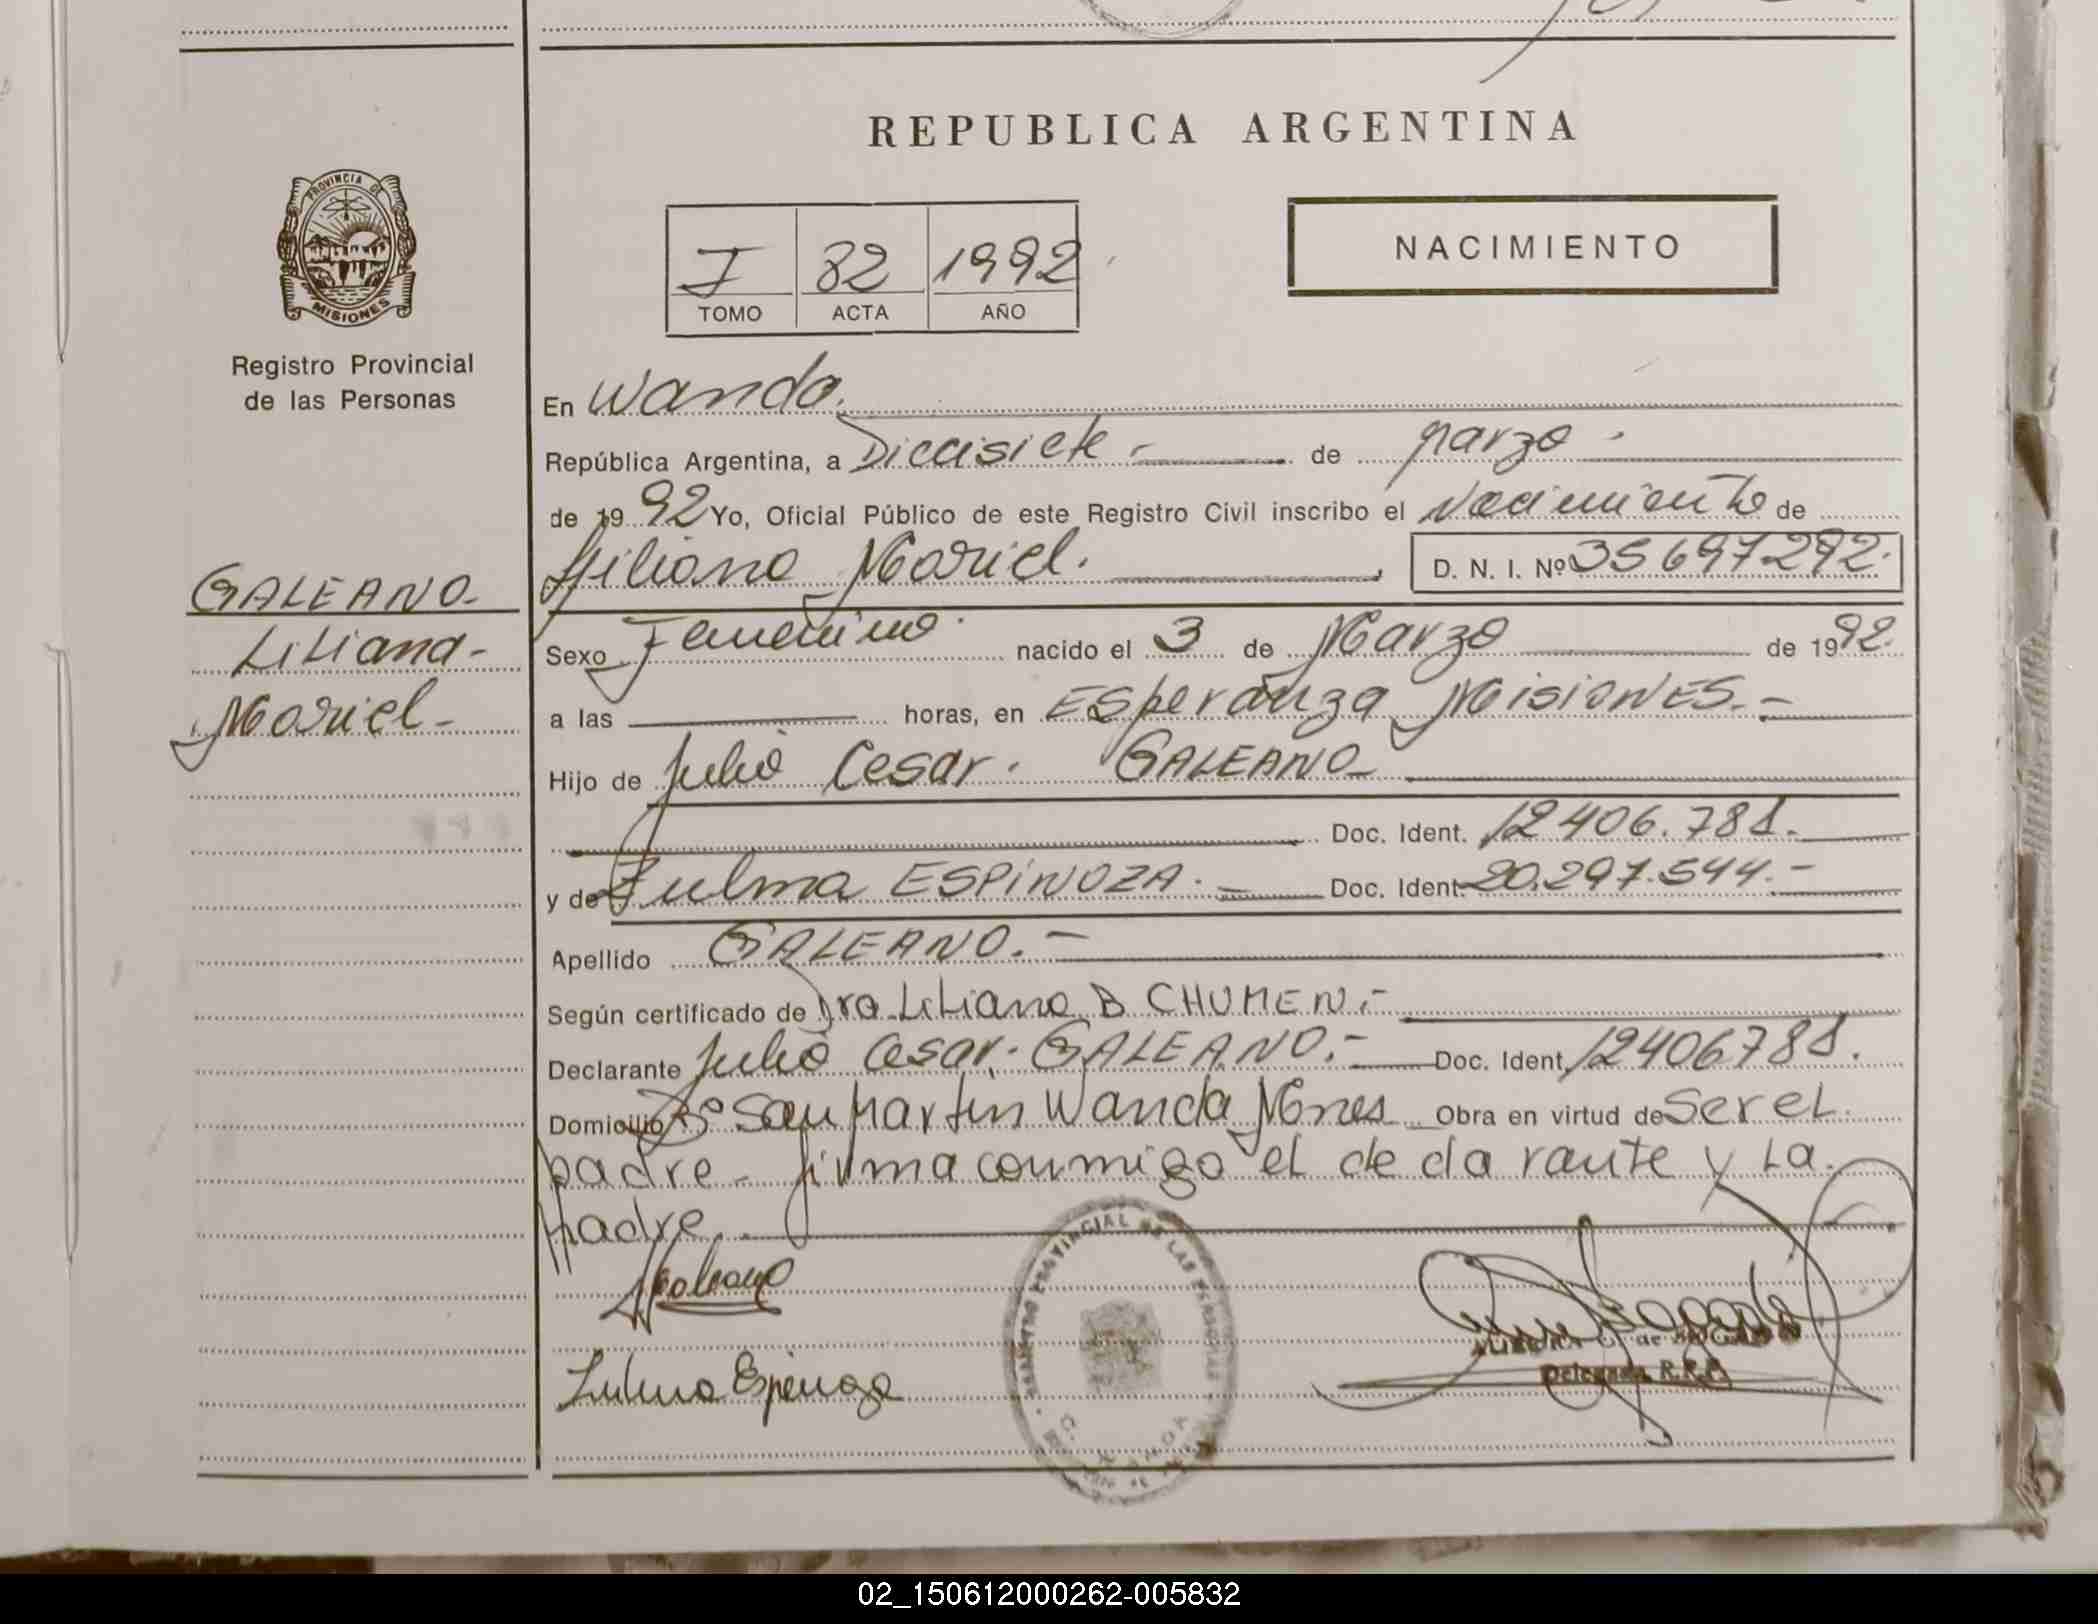 REPUBLICA ARGENTINA
PROVINCIA DE
MISIONES
Registro Provincial
de las Personas
GALEANO-
Liliana-
Mariel-
I 82 1992
TOMO ACTA AÑO
NACIMIENTO
En Wanda.
República Argentina, a Diecisiete - de Marzo -
de 1992 Yo, Oficial Público de este Registro Civil inscribo el Nacimiento de
Liliana Mariel. D. N. I. Nº 35697292.
Sexo Femenino. nacido el 3 de Marzo de 1992.
a las horas, en Esperanza Misiones.-
Hijo de Julio Cesar. GALEANO
Doc. Ident. 12406.788.
y de Zulma ESPINOZA.- Doc. Ident. 20.297.544.-
Apellido GALEANO.-
Según certificado de Dra Liliana B CHUMEN.-
Declarante Julio Cesar. GALEANO.- Doc. Ident. 12406788.
Domicilio Bº San Martin Wanda Mnes Obra en virtud de Ser el
padre - firma conmigo el declarante y La
Madre.
Galeano
Zulma Espinoza
Delegada R.P.P.
02_150612000262-005832